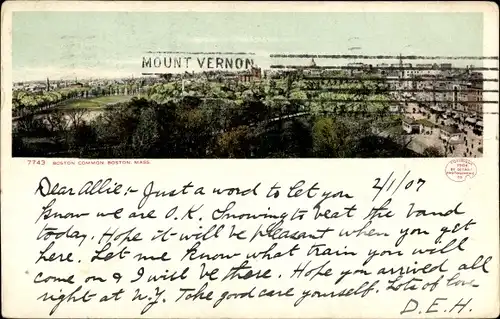 MOUNT VERNON
7743 BOSTON COMMON, BOSTON MASS.
Dear Allie:- Just a word to let you 2/1/07
know we are O.K. Snowing to beat the band
today. Hope it will be pleasant when you get
here. Let me know what train you will
come on & I will be there. Hope you arrived all
right at N.Y. Take good care yourself. Lots of love
D.E.H.